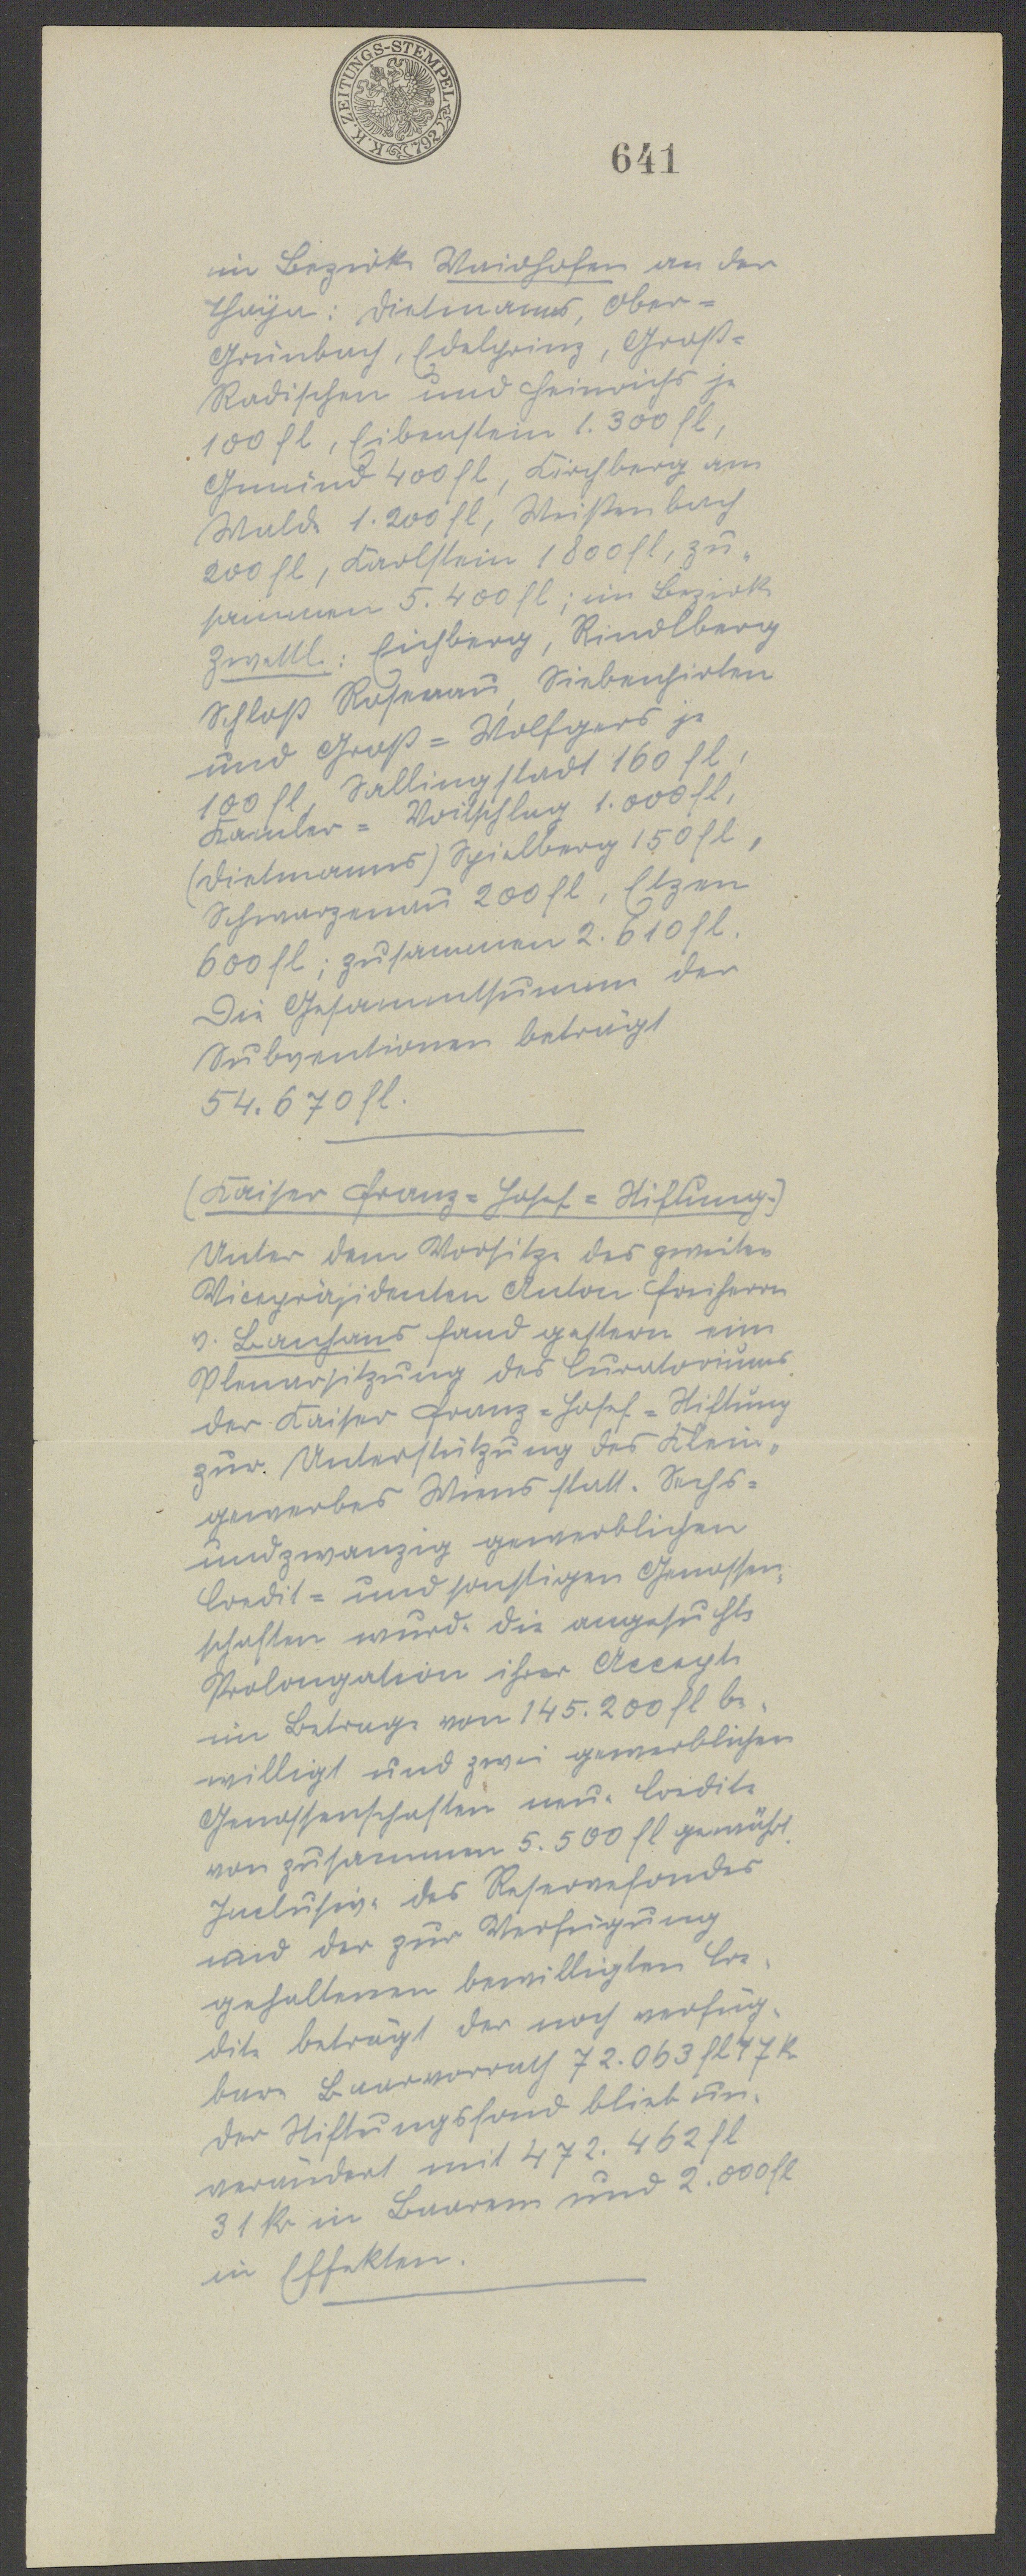 K.K. ZEITUNGS-STEMPEL 762
641
im Bezirke Waidhofen an der
Thaya: Dietmanns, Ober=
Grünbach, Edelprinz, Groß=
Radischen und Heinrichs je
100 fl, Eibenstein 1.300 fl,
Gmünd 400 fl, Kirchberg am
Walde 1.200 fl, Weißenbach
200 fl, Karlstein 1800 fl, zu„
sammen 5.400 fl; im Bezirk
Zwettl: Eichberg, Rindlberg
Schloß Rosenau, Siebenhirten
und Groß=Wolfgers je
100 fl, Sallingstadt 160 fl,
Kamler= Voitschlag 1.000 fl,
(Dietmanns) Spielberg 150 fl,
Schwarzenau 200 fl, Etzen
600 fl; zusammen 2.610 fl.
Die Gesammtsumme der
Subventionen beträgt
54.670 fl.
(Kaiser Franz=Josef=Stiftung.)
Unter dem Vorsitze des zweiten
Vicepräsidenten Anton Freiherrn
v. Banhans fand gestern eine
Plenarsitzung des Curatoriums
der Kaiser Franz=Josef=Stiftung
zur Unterstützung des Klein„
gewerbes Wiens statt. Sechs=
undzwanzig gewerblichen
Credit= und sonstigen Genossen„
schaften wurde die angesuchte
Prolongation ihrer Accepte
im Betrage von 145.200 fl be„
willigt und zwei gewerblichen
Genossenschaften neue Credite
von zusammen 5.500 fl gewährt.
Inclusive des Reservefondes
und der zur Verfügung
gehaltenen bewilligten Cre„
dite beträgt der noch verfüg„
bare Baarvorrath 72.063 fl 47 kr
Der Stiftungsfond blieb un„
verändert mit 472.462 fl
31 kr in Baarem und 2.000 fl
in Effekten.